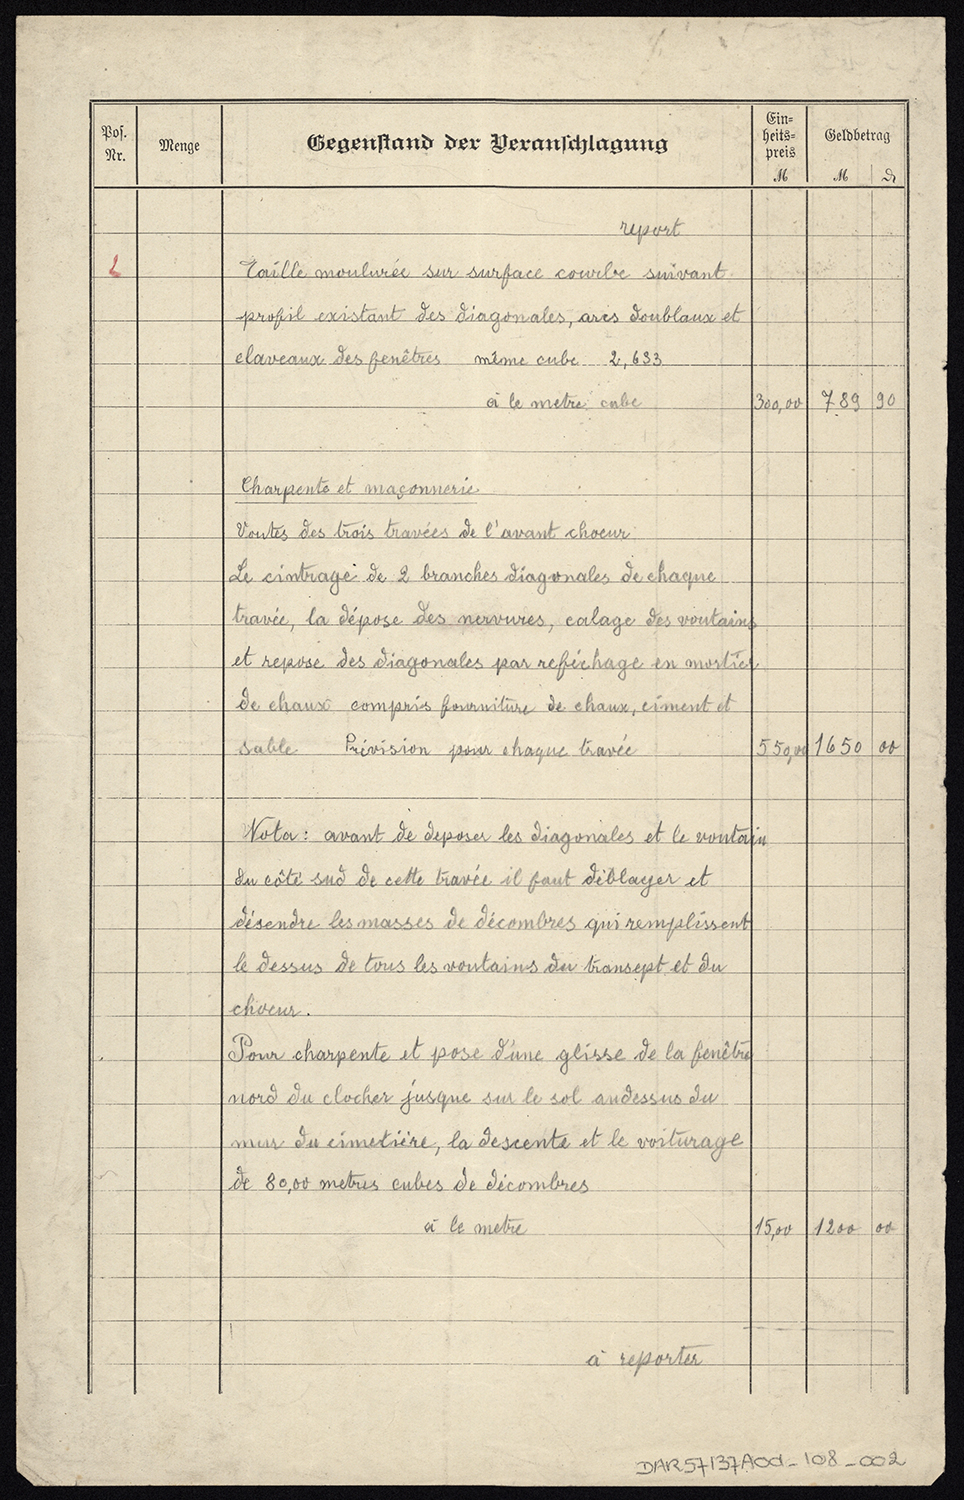 Pos. Nr.
Menge
Gegenstand der Veranschlagung
Ein-
heits-
preis
M
Geldbetrag
M
₰
report
2
Taille moulurée sur surface courbe suivant
profil existant des diagonales, arcs doublaux et
claveaux des fenêtres même cube 2,633
à le metre cube 300,00 789 90
Charpente et maçonnerie
Voutes des trois travées de l'avant choeur
Le cintrage de 2 branches diagonales de chaque
travée, la dépose des nervures, calage des voutains
et repose des diagonales par refichage en mortier
de chaux compris fourniture de chaux, ciment et
sable Prévision pour chaque travée 550,00 1650 00
Nota: avant de deposer les diagonales et le voutain
du côté sud de cette travée il faut déblayer et
désendre les masses de décombres qui remplissent
le dessus de tous les voutains du transept et du
choeur.
Pour charpente et pose d'une glisse de la fenêtre
nord du clocher jusque sur le sol audessus du
mur du cimetière, la descente et le voiturage
de 80,00 metres cubes de décombres
à le metre 15,00 1200 00
à reporter
DAR57137A0d-108-002